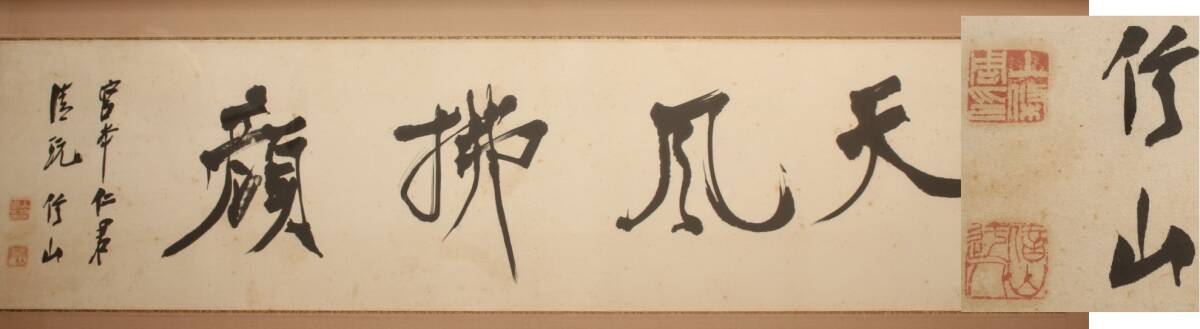 天風拂顔
宮本仁君
清玩 山
山